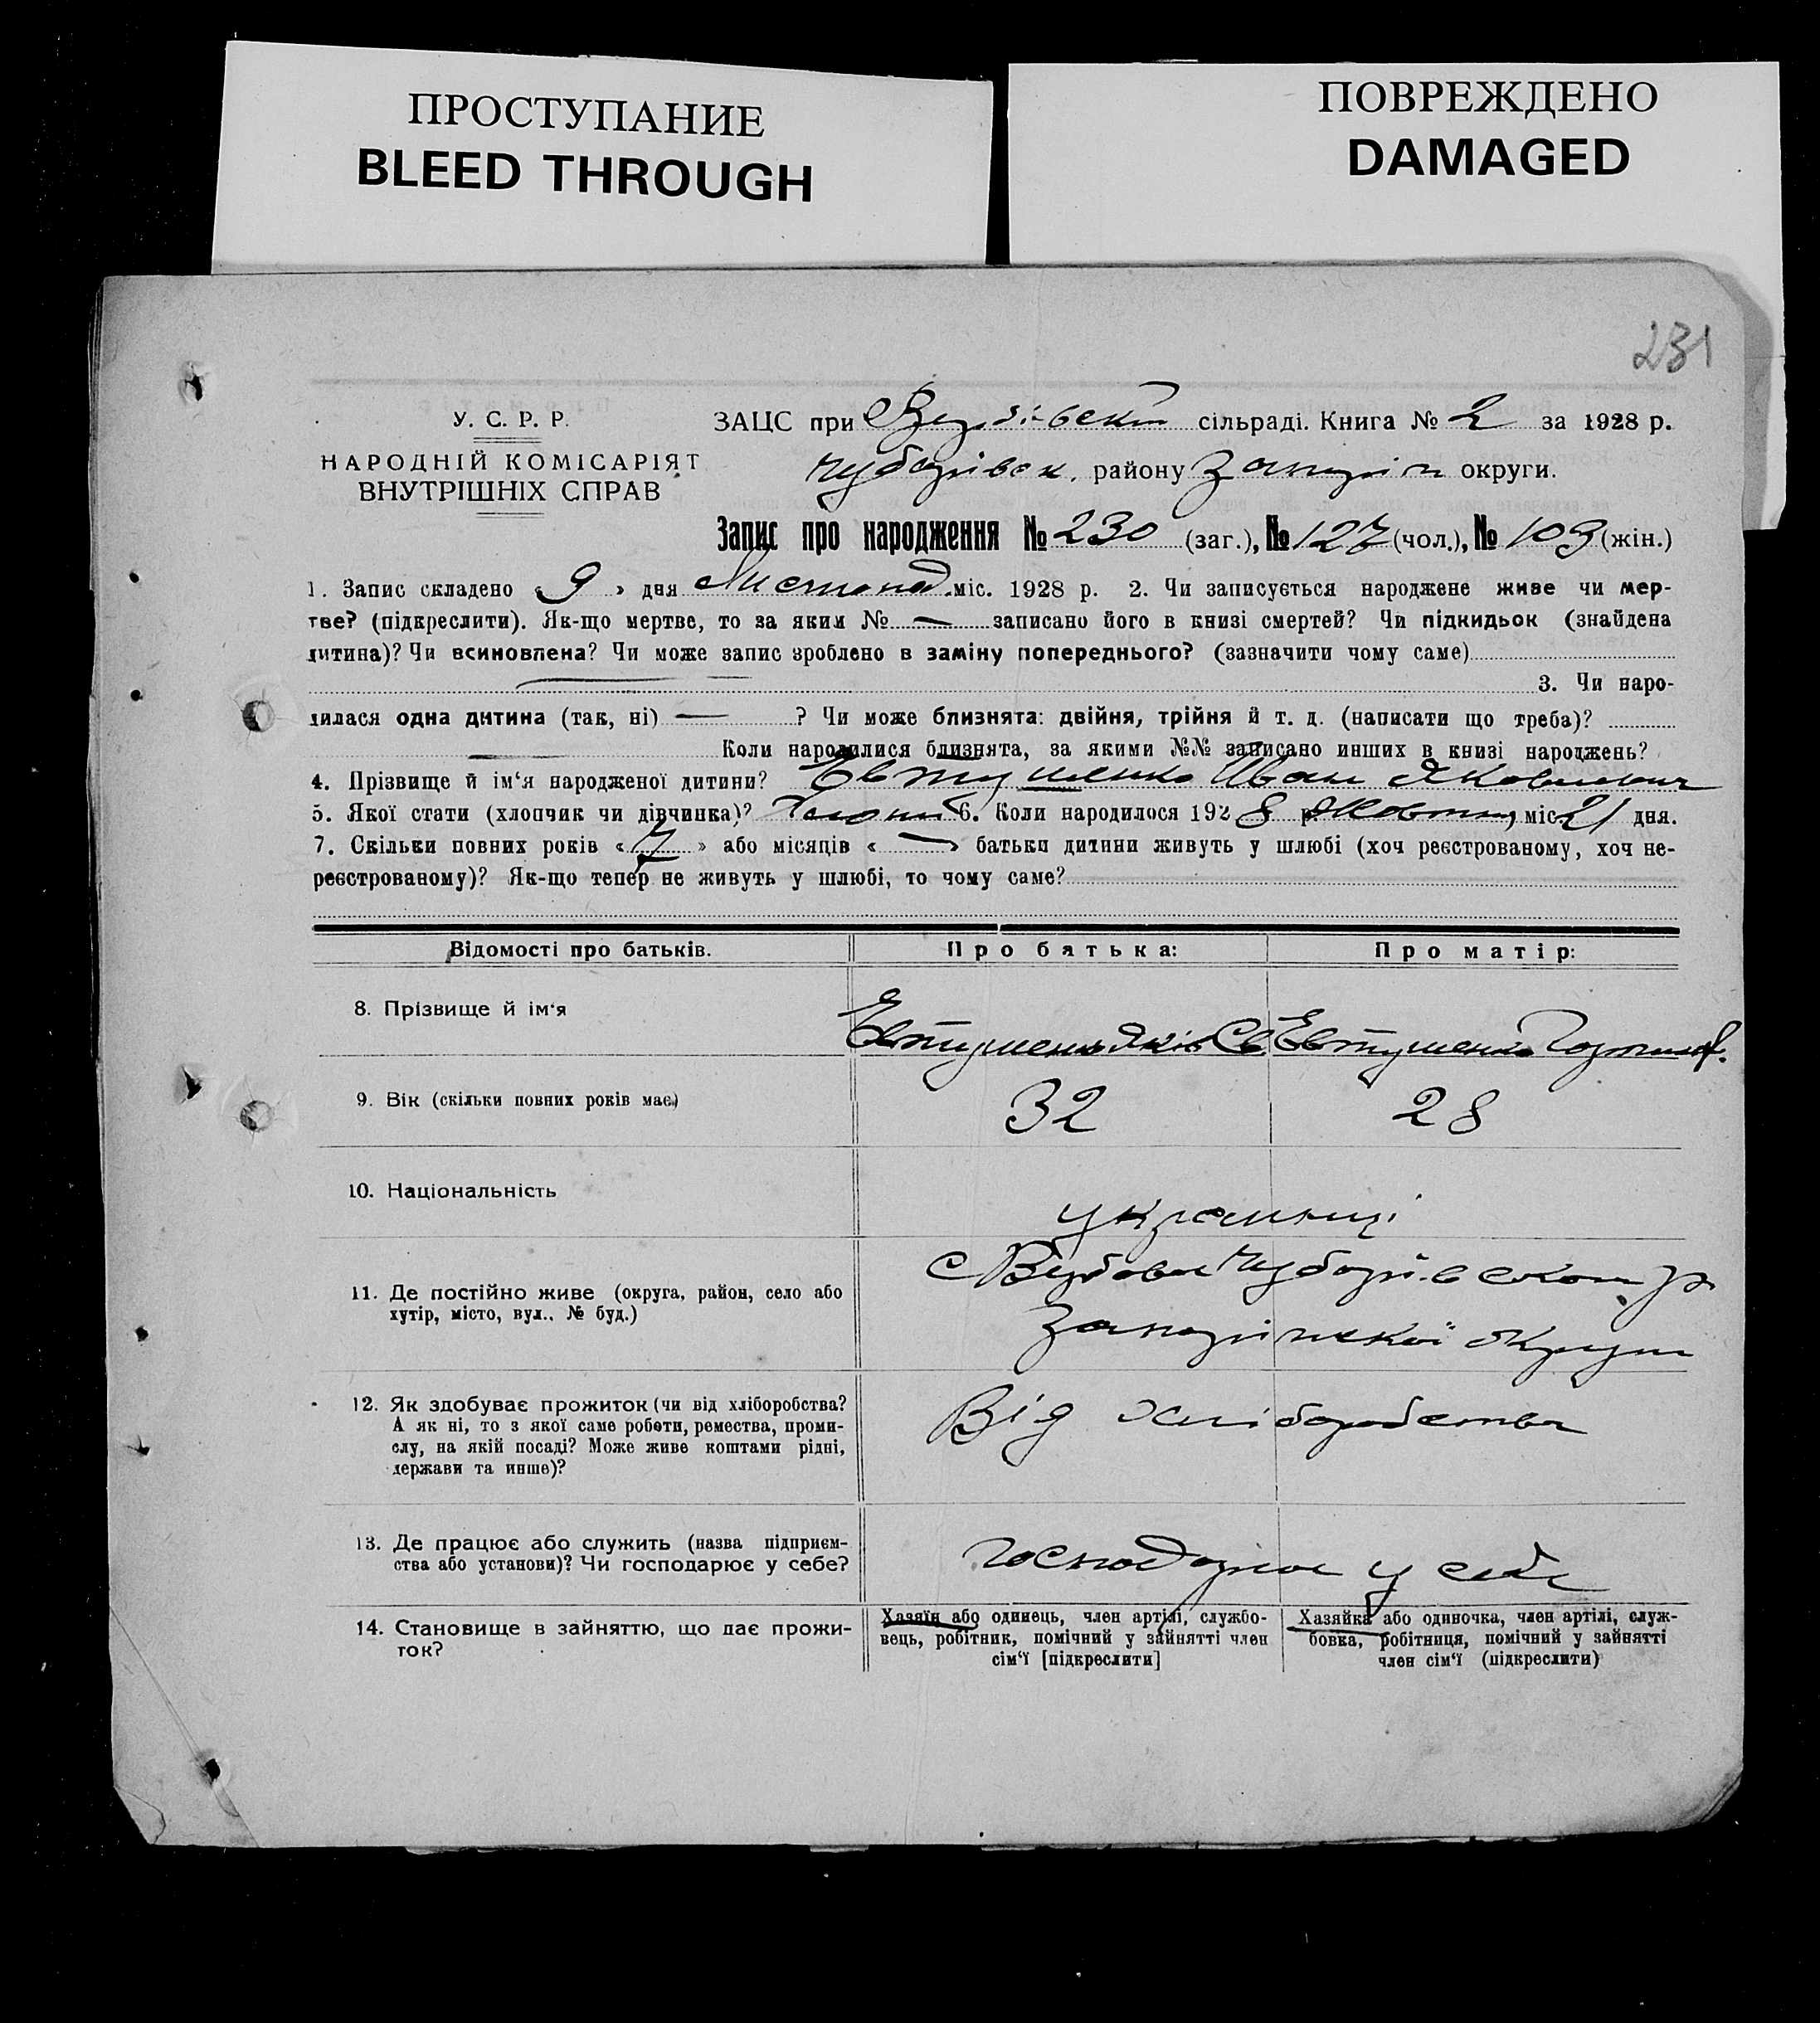 ПРОСТУПАНИЕ
BLEED THROUGH
ПОВРЕЖДЕНО
DAMAGED
231
У. С. Р. Р.
НАРОДНІЙ КОМІСАРІЯТ
ВНУТРІШНІХ СПРАВ
ЗАЦС при сільраді. Книга № 2 за 1928 р.
Чубарівск. району Запоріж округи.
Запис про народження № 230 (заг.), № 127 (чол.), № 103 (жін.)
1. Запис складено « 9 » дня Листопад. міс. 1928 р. 2. Чи записується народжене живе чи мер-
тве? (підкреслити). Як-що мертве, то за яким № — записано його в книзі смертей? Чи підкидьок (знайдена
дитина)? Чи всиновлена? Чи може запис зроблено в заміну попереднього? (зазначити чому саме)
3. Чи наро-
дилася одна дитина (так, ні) — ? Чи може близнята: двійня, трійня й т. д. (написати що треба)?
— Коли народилися близнята, за якими №№ записано инших в книзі народжень?
4. Прізвище й ім‘я народженої дитини? Евтушенко Иван Яковлевич
5. Якої стати (хлопчик чи дівчинка)? Хлопчик 6. Коли народилося 1928 р. Жовтня міс. 21 дня.
7. Скільки повних років « 7 » або місяців « — » батьки дитини живуть у шлюбі (хоч реєстрованому, хоч не-
реєстрованому)? Як-що тепер не живуть у шлюбі, то чому саме?
Відомості про батьків. Про батька: Про матір:
8. Прізвище й ім‘я Евтушенко Яків Св. Евтушенко
9. Вік (скільки повних років має) 32 28
10. Національність українці
11. Де постійно живе (округа, район, село або
хутір, місто, вул., № буд.)
с Вербове Чубарівського р.
Запоріжскої Округи
12. Як здобуває прожиток (чи від хліборобства?
А як ні, то з якої саме роботи, ремества, проми-
слу, на якій посаді? Може живе коштами рідні,
держави та инше)?
Від хліборобства
13. Де працює або служить (назва підприєм-
ства або установи)? Чи господарює у себе?
господарює у себе
14. Становище в зайняттю, що дає прожи-
ток?
Хазяїн або одинець, член артілі, службо-
вець, робітник, помічний у зайнятті член
сім‘ї [підкреслити]
Хазяйка або одиночка, член артілі, служ-
бовка, робітниця, помічний у зайнятті
член сім‘ї (підкреслити)